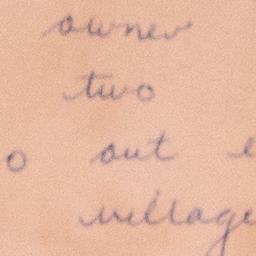 owner
two
o out
village